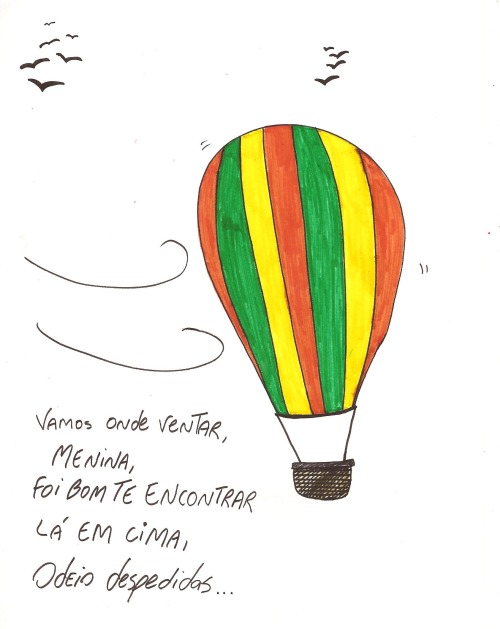 Vamos onde ventar,
MENINA,
Foi BOM TE ENCONTRAR
LÁ EM CIMA,
Odeio despedidas...